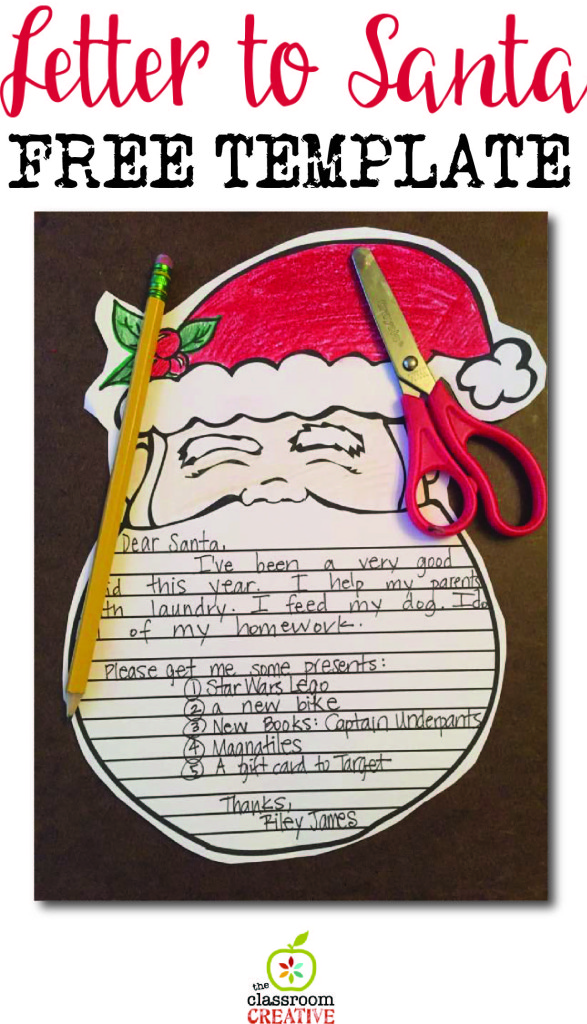 Letter to Santa
FREE TEMPLATE
Dear Santa,
I've been a very good
id this year. I help my parents
th laundry. I feed my dog. I do
of my homework.
Please get me some presents:
① Star Wars Lego
② a new bike
③ New Books: Captain Underpants
④ Magnatiles
⑤ A gift card to Target
Thanks,
Riley James
the
classroom
CREATIVE